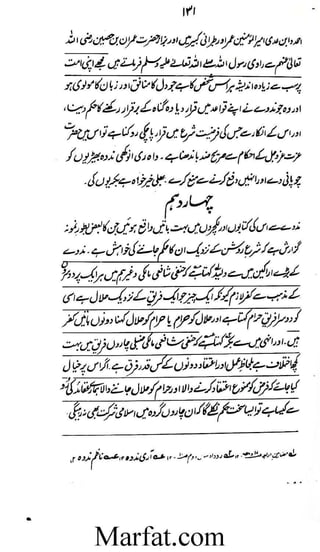 ۱۳۱
احمد و ابن عدی امیر المومنین عمر اور طبرانی کبیر میں اور بزار حضرت عمران بن حصین رضی اللہ
تعالیٰ عنہم سے راوی رسول اللہ صلے اللہ تعالےٰ علیہ وسلم فرماتے ہیں مجھے اپنی امت
پر سب سے زیادہ اندیشہ ہر اس شخص کا ہے جو دل کا منافق اور زبان کا مولوی ہو
اور وہ جو ندوے نے اپنے قواعد میں قرار دیا وہ گناہ کے برقرار رکھنے کا حکم دینا،
اور اس کے انکار سے جس کی فرضیت شرع میں قرار پا چکی روکنا ہے تو اس میں حضرت
عزت عزوجل کے احکام سے صریح ضد باندھنا ہے۔ واہ ری انوکھی ندوہ بھیڑیوں کو
چوپانی دے اور انہیں دفع کرنے سے منع کرے، بھلی خیر خواہ ہے بکریوں کی۔
چہاردہم
ندوے سے اس کی کتابوں اور لکچروں میں بہت باتیں واقع ہوئیں جن کا بعض بطور نمونہ
گزارش ہے کہ شرع روشن کے نزدیک ان کا حکم جاننے کی خواہش ہے۔ ندوے
کے بڑے اراکین میں سے کہتا ہے کہ حنفی شافعی مالکی وغیرہم میں ہر ایک پر دوسرے
کے مذہب سے کفر لازم کیونکہ ایک چیز جو ایک فریق کے نزدیک حلال ہے اسی
کو دوسرا فریق حرام کہتا ہے اور حلال کو حرام یا حرام کو حلال کہنا دونوں باتیں کفر
ہیں۔ اور انہی میں سے کہتا ہے کہ حنفی شافعی مالکی حنبلی چاروں فریق میں بہت
کچھ اختلاف ہے بلحاظ عمل اور اعتقاد دونوں کے کس قدر فرق ہے۔ اگر اس پر خیال
کیا جائے کہ فرض کو ممنوع اعتقاد کرنے والا اور حرام کو حلال جاننے والا ہمارے عقائد کی
سے کیسا ہے تو ایسا سخت حکم نکلے گا کہ ان چاروں گروہ میں اسلامی شرکت بھی نہ رہیگی۔
Marfat.com